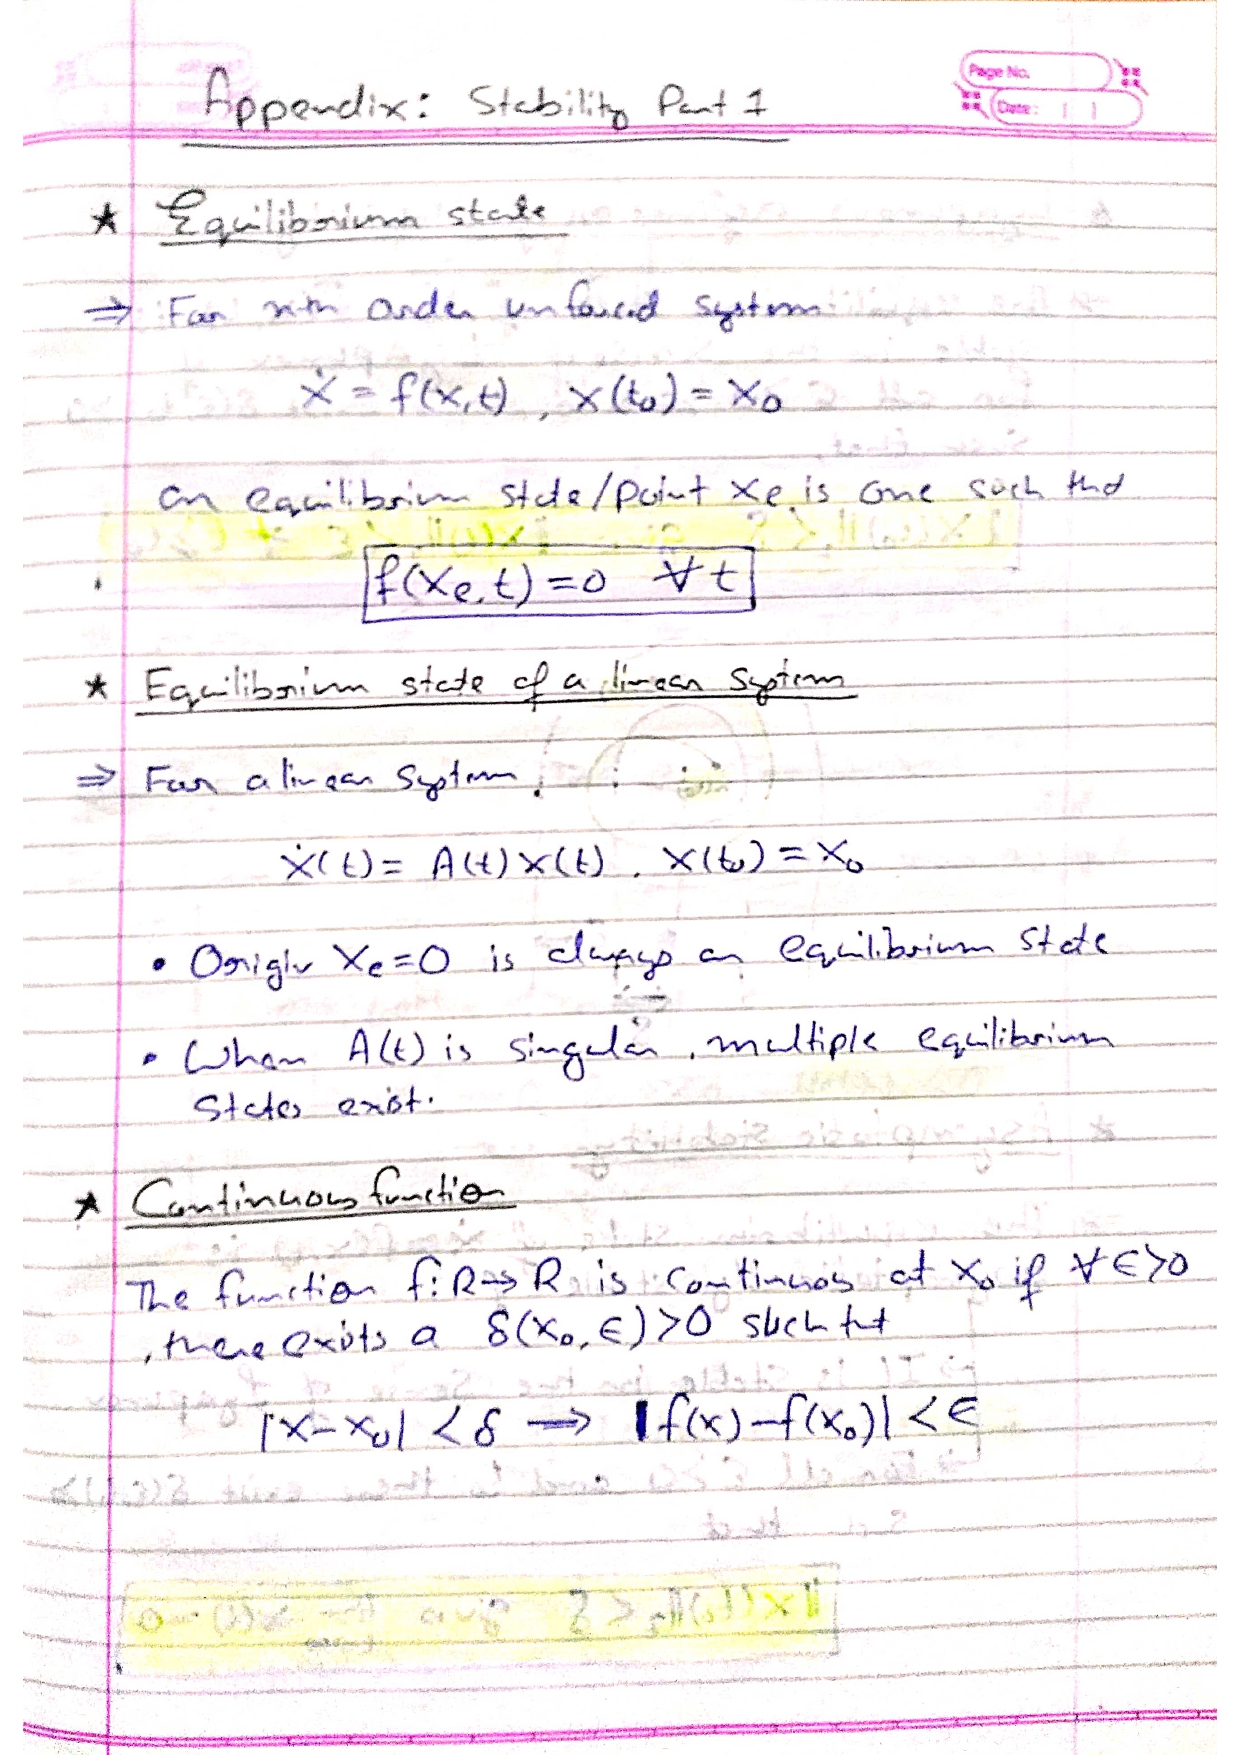 Appendix: Stability Part 1
Page No.
Date:
★ Equilibrium state
⇒ For nth order unforced system
ẋ = f(x,t), x(t₀) = x₀
an equilibrium state/point xe is one such that
f(xe,t)=0 ∀t
★ Equilibrium state of a linear system
⇒ For a linear system,
ẋ(t) = A(t)x(t), x(t₀) = x₀
• Origin xe=0 is always an equilibrium state
• When A(t) is singular, multiple equilibrium
states exist.
★ Continuous function
The function f: R→R is continuous at x₀ if ∀ϵ>0
, there exists a δ(x₀,ϵ)>0 such that
|x-x₀| < δ ⇒ |f(x)-f(x₀)| < ϵ